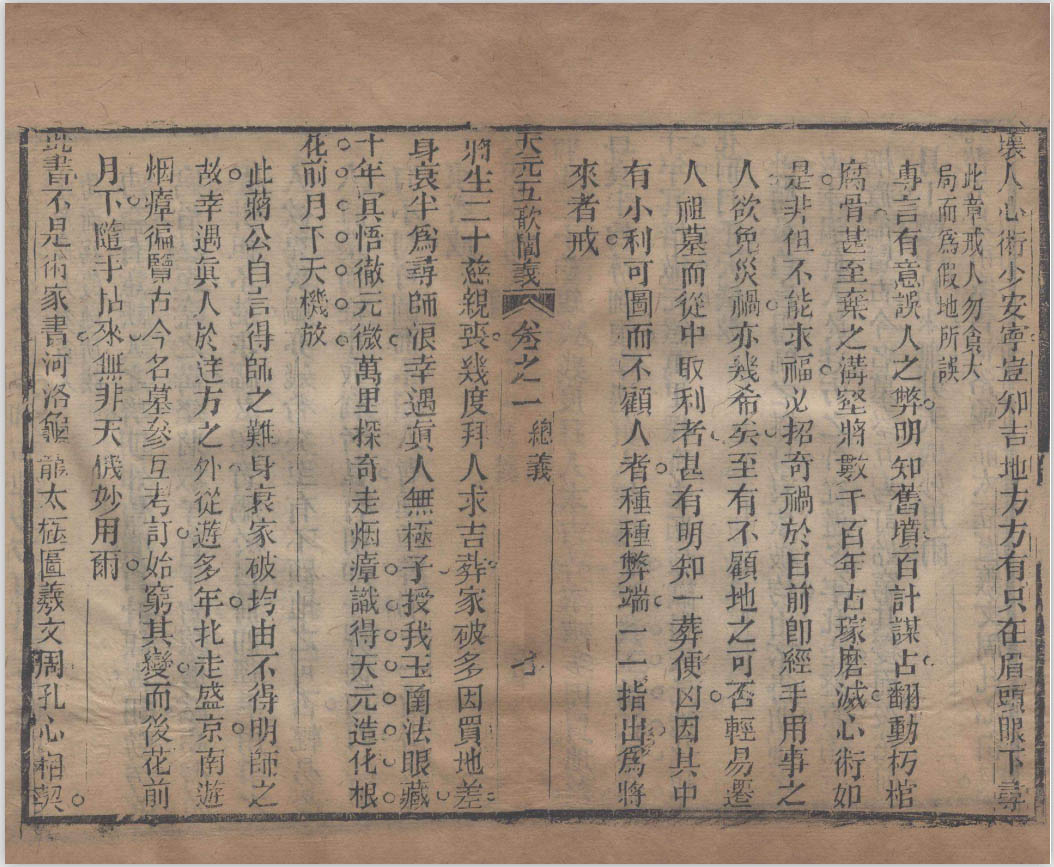 壞人心術少安寧豈知吉地方方有只在眉頭眼下尋
此章戒人勿貪大
局而爲假地所誤
專言有意誤人之弊明知舊墳百計謀占翻動朽棺
腐骨甚至棄之溝壑將數千百年古塚磨滅心術如
是非但不能求福必招奇禍於目前卽經手用事之
人欲免災禍亦幾希矣至有不顧地之可否輕易遷
人祖墓而從中取利者甚有明知一葬便凶因其中
有小利可圖而不顧人者種種弊端一一指出爲將
來者戒
天元五歌闡義 卷之一 總義
將生二十慈親喪幾度拜人求吉葬家破多因買地差
身衰半爲尋師浪幸遇眞人無極子授我玉函法眼藏
十年冥悟徹元微萬里探奇走烟瘴識得天元造化根
花前月下天機放
此蔣公自言得師之難身衰家破均由不得明師之
故幸遇眞人於迬方之外從遊多年北走盛京南遊
烟瘴徧覽古今名墓參互考訂始窮其變而後花前
月下隨手拈來無非天機妙用爾
此書不是術家書河洛龜龍太極圖羲文周孔心相契